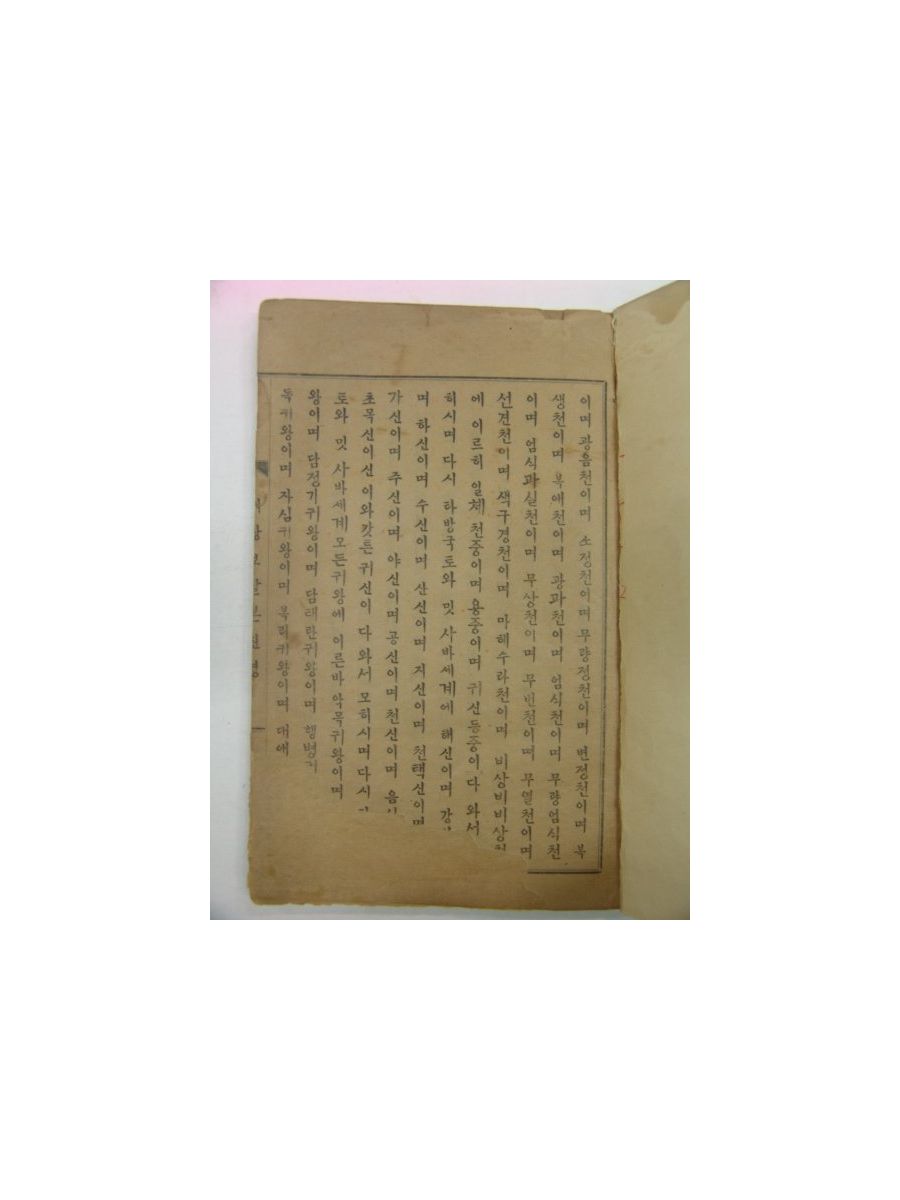 이며 광음천이며 소정천이며 무량정천이며 변정천이며 복
생천이며 복애천이며 광과천이며 엄식천이며 무량엄식천
이며 엄식과실천이며 무상천이며 무번천이며 무열천이며
선견천이며 색구경천이며 마혜수라천이며 비상비비상천
에 이르히 일체 천중이며 용중이며 귀신등중이 다 와서
히시며 다시 타방국토와 밋 사바세계에 해신이며 강
며 하신이며 수신이며 산신이며 지신이며 천택신이며
가신이며 주신이며 야신이며 공신이며 천신이며 음
초목신이신 이와캇튼 귀신이 다 와서 모히시며 다시
토와 밋 사바세계 모든귀왕에 이른바 악목귀왕이며
왕이며 담정기귀왕이며 담태란귀왕이며 행병
독귀왕이며 자심귀왕이며 복리귀왕이며 대애